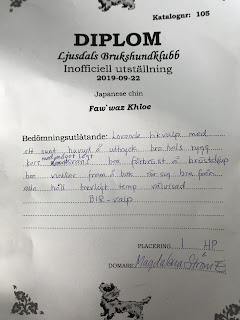 Katalognr: 105
DIPLOM
Ljusdals Brukshundklubb
Inofficiell utställning
2019-09-22
Japanese chin
Faw'waz Khloe
Bedömningsutlåtande: Lovande tikvalp med
ett sunt huvud & uttryck bra hals rygg
kors medelgott lågt bra förbröst & bröstdjup
bra vinklar fram & bak rör sig bra från
alla håll härligt temp välvisad
BIR-valp
PLACERING 1 HP
DOMARE: Magdalena Ström E